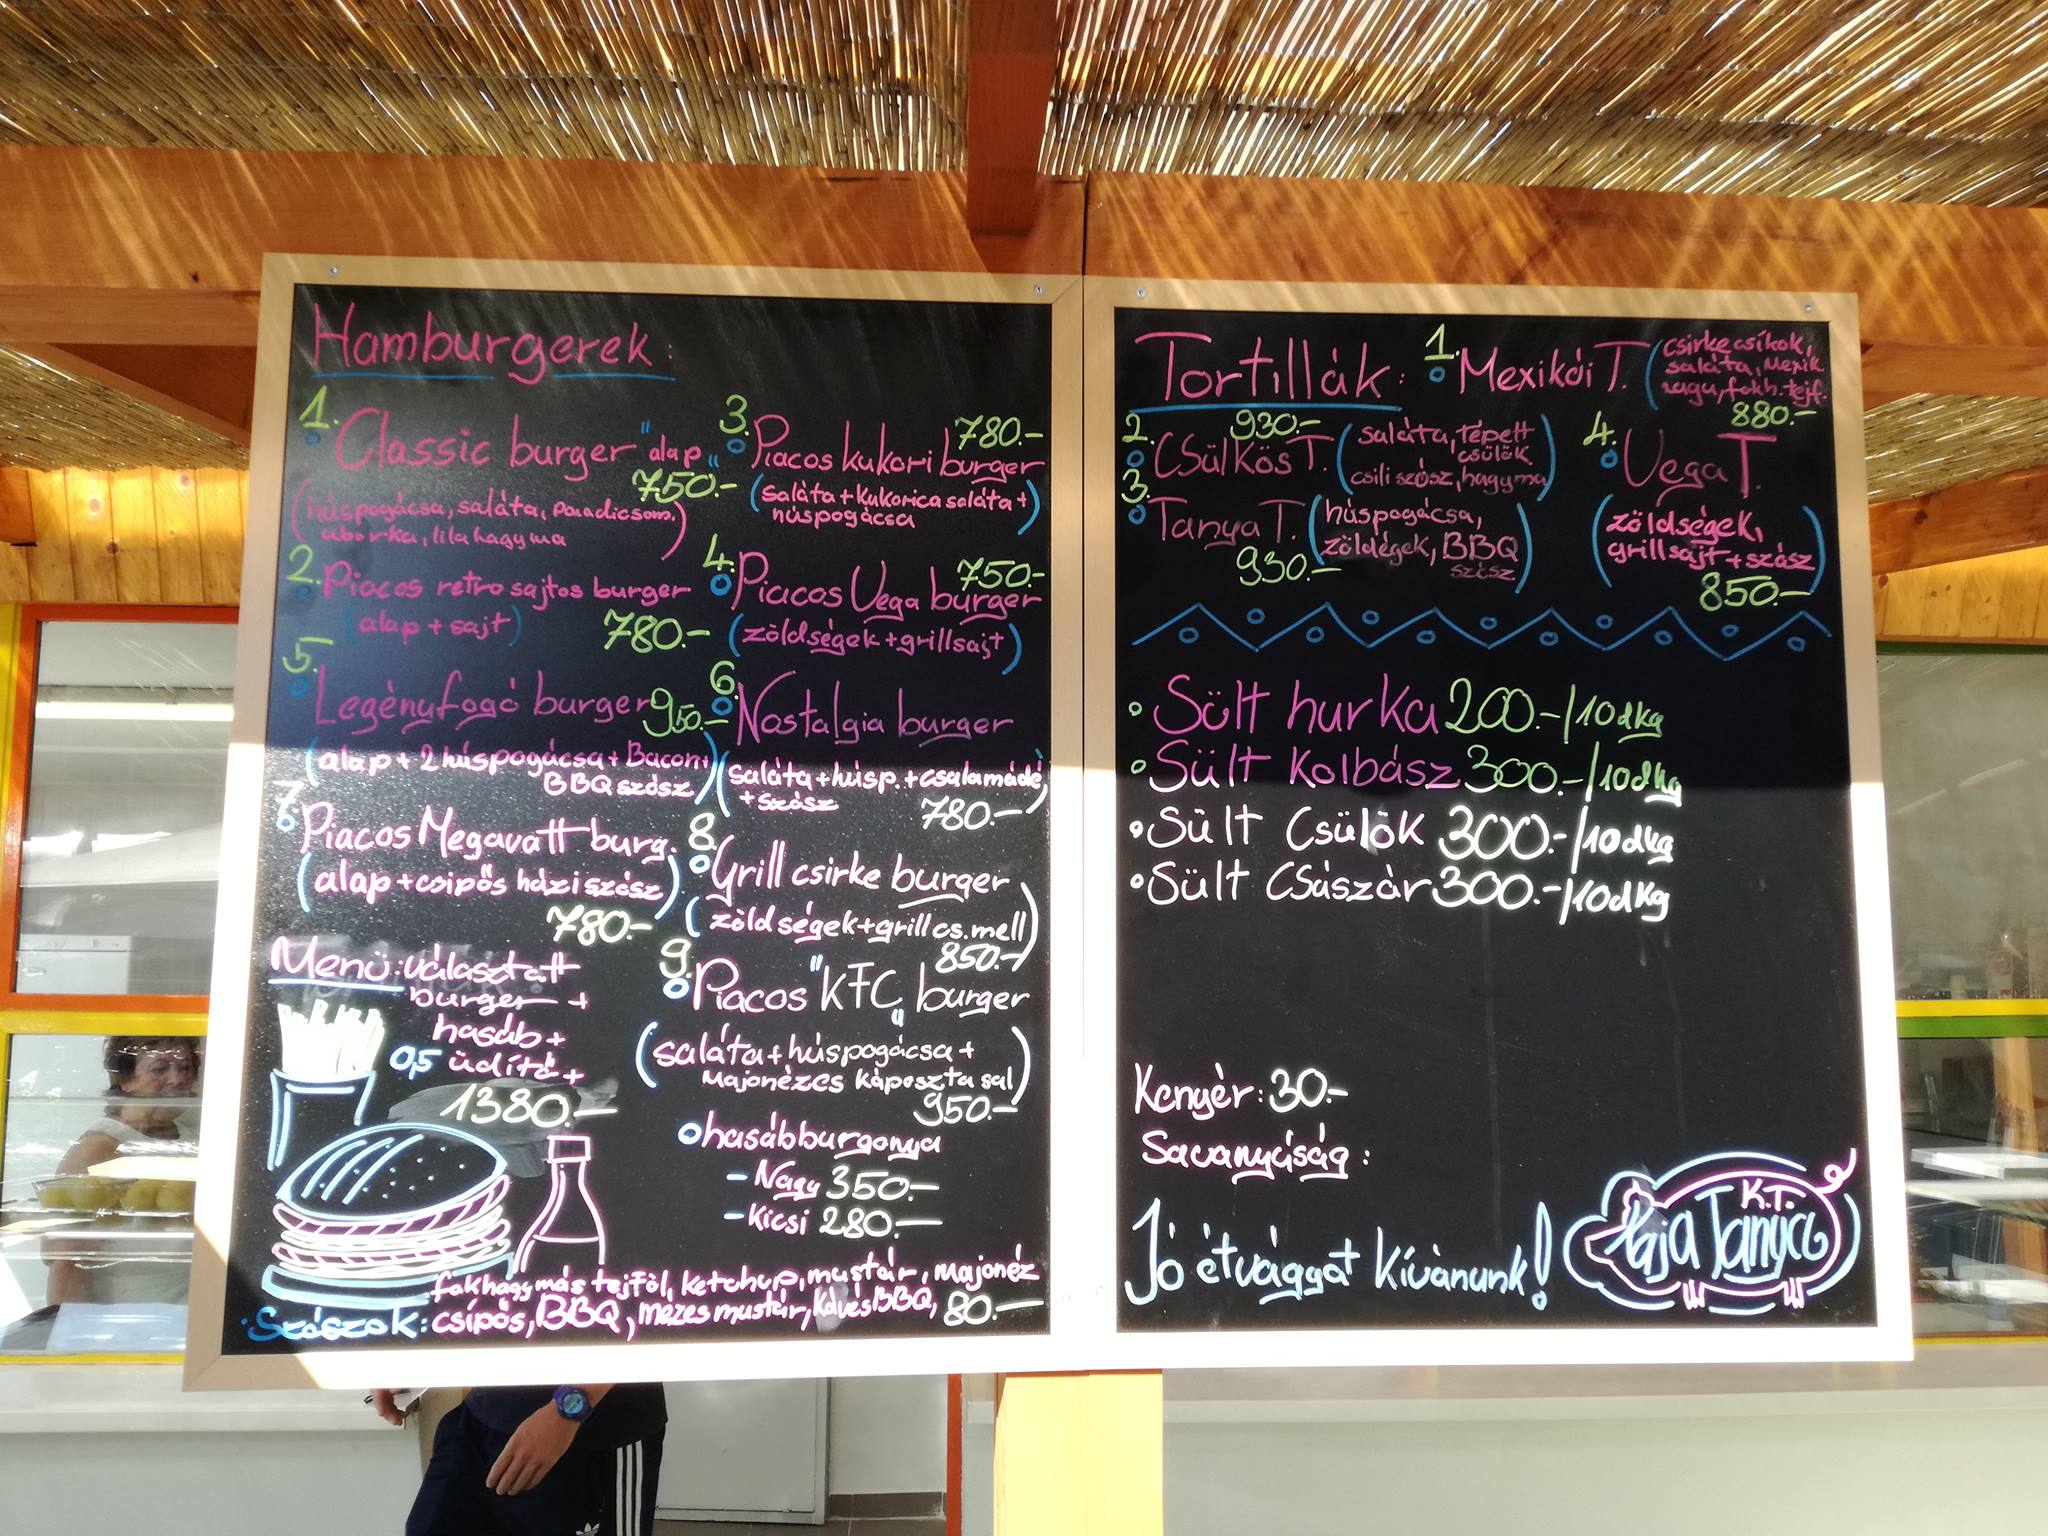 Hamburgerek:
1. Classic burger "alap"
750.-
(húspogácsa, saláta, paradicsom,
uborka, lila hagyma)
2. Piacos retro sajtos burger
(alap + sajt) 780.-
3. Piacos kukori burger 780.-
(saláta + kukorica saláta +
húspogácsa)
4. Piacos Vega burger 750.-
(zöldségek + grillsajt)
5. Legényfogó burger 950.-
(alap + 2 húspogácsa + Bacon +
BBQ szósz)
6. Nostalgia burger
(saláta + húsp. + csalamádé
+ szósz) 780.-
7. Piacos Megavatt burg.
(alap + csipős házi szósz)
780.-
8. Grill csirke burger
(zöldségek + grill cs. mell)
850.-
9. Piacos "KFC" burger
(saláta + húspogácsa +
majonézes káposzta sal)
950.-
Menü: választott
burger +
hasáb +
0,5 üdítő +
1380.-
hasábburgonya
- Nagy 350.-
- Kicsi 280.-
fokhagymás tejföl, ketchup, mustár, majonéz
Szószok: csípős, BBQ, mézes mustár, kávés BBQ, 80.-
Tortillák:
1. Mexikói T. (csirkecsíkok,
saláta, Mexik.
ragu, fokh. tejf.
880.-
2. Csülkös T. 930.- (saláta, tépett
csülök
csili szósz, hagyma)
3. Tanya T. (húspogácsa,
zöldégek, BBQ
szósz)
930.-
4. Vega T.
(zöldségek,
grillsajt + szósz)
850.-
Sült hurka 200.-/10dkg
Sült Kolbász 300.-/10dkg
Sült Csülök 300.-/10dkg
Sült Császár 300.-/10dkg
Kenyér: 30.-
Savanyúság:
Jó étvágyat Kívánunk!
K.T.
Tanya